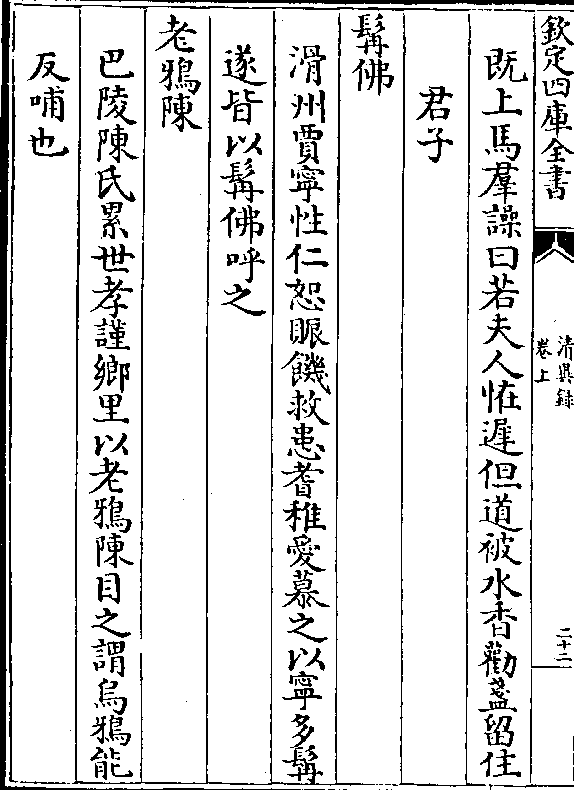 欽定四庫全書
清異錄
卷上
二十二
既上馬羣譟曰若夫人怪遲但道被水香勸盞留住
君子
髯佛
滑州賈寧性仁恕賑饑救患耆稚愛慕之以寧多髯
遂皆以髯佛呼之
老鴉陳
巴陵陳氏累世孝謹鄉里以老鴉陳目之謂烏鴉能
反哺也